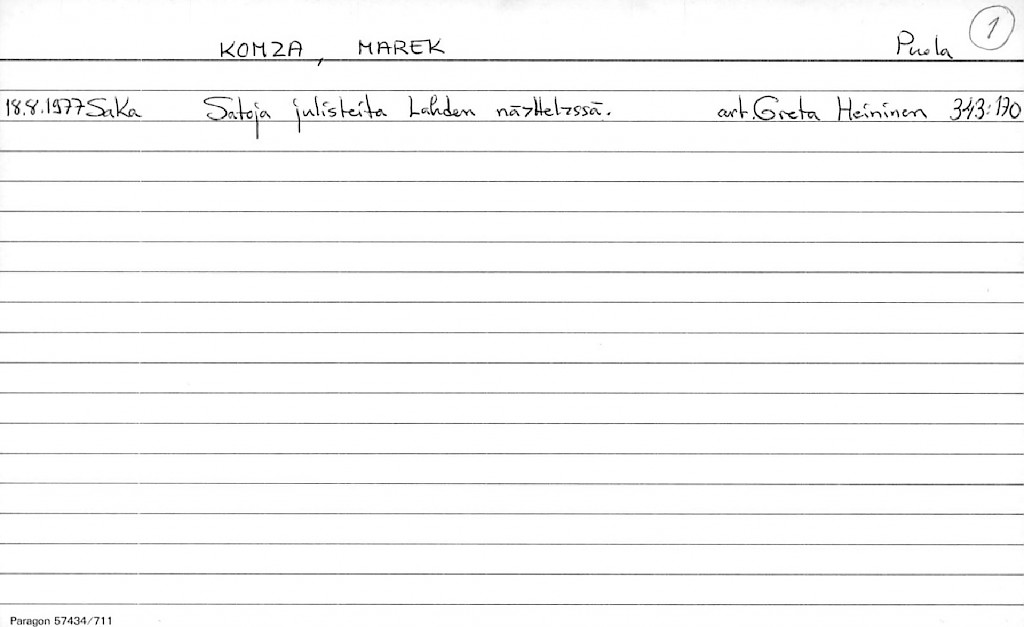 KOMZA, MAREK Puola 1
18.8.1977 SaKa Satoja julisteita Lahden näyttelyssä. art. Greta Heininen 343:170
Paragon 57434/711